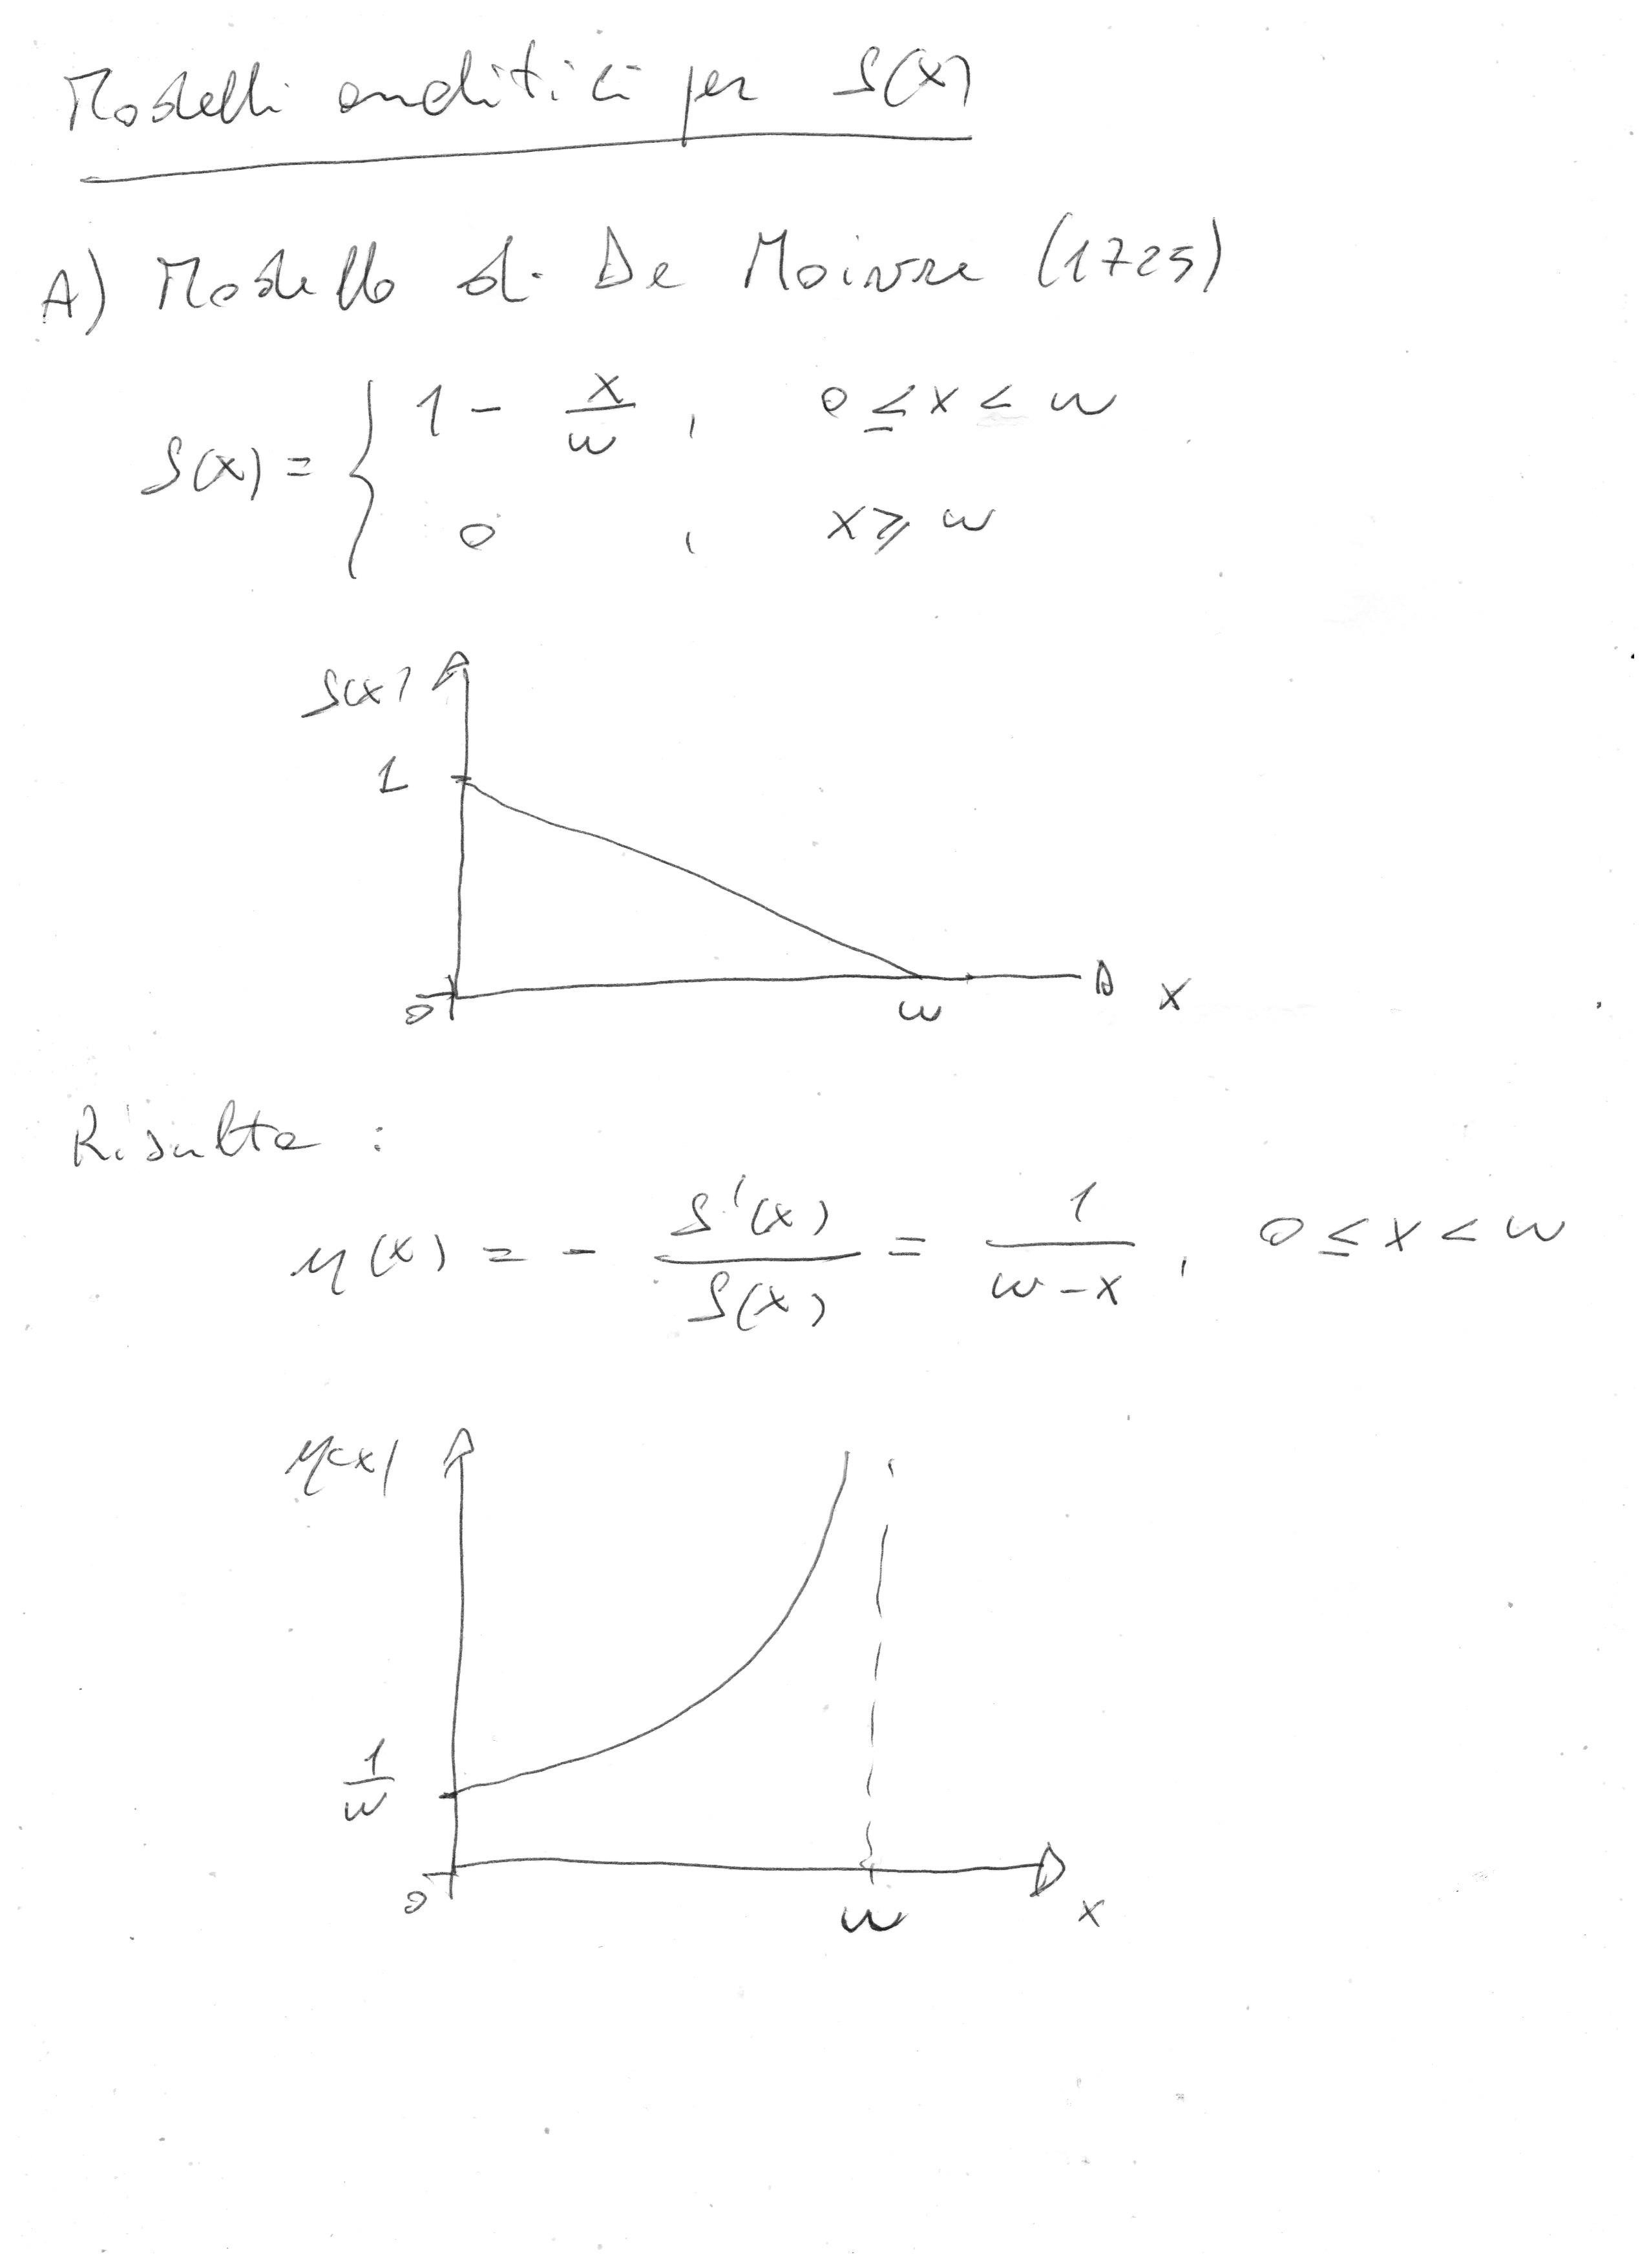 Modelli analitici per S(x)
A) Modello di De Moivre (1725)
S(x) = { 1 - x/ω , 0 ≤ x < ω
0 , x ≥ ω
S(x)
1
0 ω x
Risulta :
μ(x) = - S'(x)/S(x) = 1/(ω-x) , 0 ≤ x < ω
μ(x)
1/ω
0 ω x